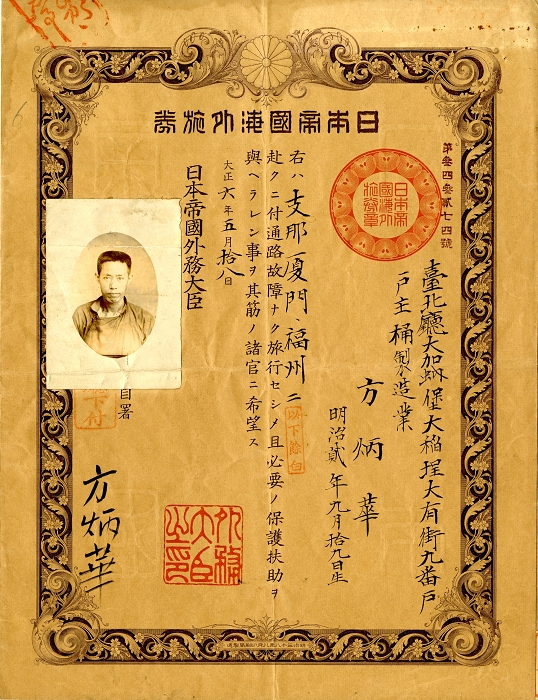 日本帝國海外旅券
第參四參貳七四號
日本帝國海外旅券章
臺北廳大加蚋堡大稻埕大有街九番戶
戶主桶製造業
方炳華
明治貳年九月拾九日生
右ハ支那厦門、福州ニ
以下餘白
赴クニ付通路故障ナク旅行セシメ且必要ノ保護扶助ヲ
與ヘラレン事ヲ其筋ノ諸官ニ希望ス
大正六年五月拾八日
日本帝國外務大臣
外務大臣之印
自署
方炳華